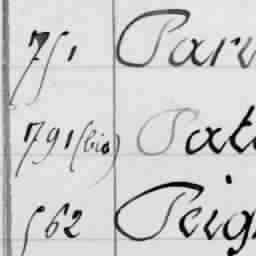 751 Parv
791 (bis) Pata
562 Peig